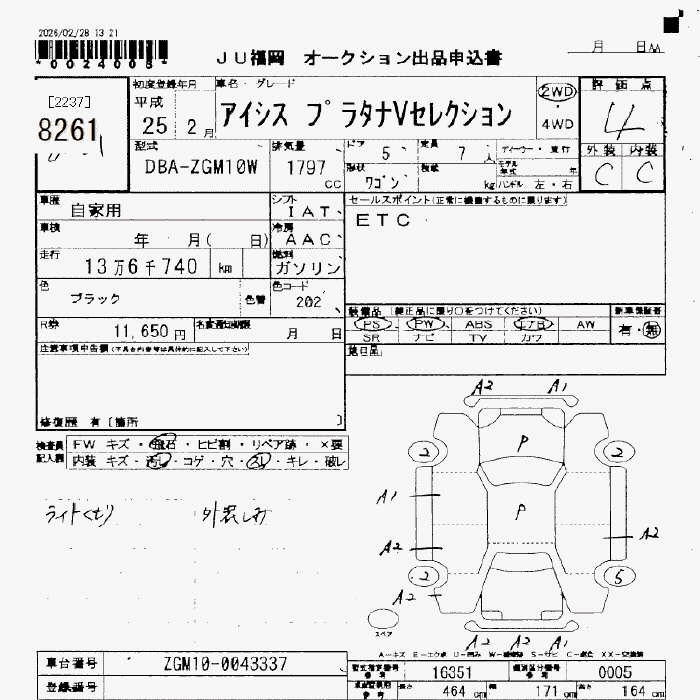 2026/02/28 13 21
*0024008*
JU福岡 オークション出品申込書
月 日
[2237]
8261
初度登録年月
平成
25 2月
車名・グレード
アイシス プラタナVセレクション
2WD
4WD
評価点
4
型式
DBA-ZGM10W
排気量
1797
CC
ドア
5
定員
7
人
ディーラー・並行
形状
ワゴン
積載
kg
モデル年式
年
ハンドル 左・右
外装 内装
C C
車歴
自家用
シフト
IAT
セールスポイント(正常に機能するものに限ります)
ETC
車検
年 月( 日)
冷房
AAC
走行
13万6千740 km
燃料
ガソリン
色
ブラック
色替
色コード
202
装備品 (純正品に限り○をつけてください)
新車保証書
PS PW ABS エアB AW
有・無
SR ナビ TV カワ
R券
11,650円
名変期限
月 日
注意事項申告欄
後日品
修復歴 有〔箇所 〕
検査員記入欄
FW キズ・飛石・ヒビ割・リペア跡・×要
内装 キズ・汚れ・コゲ・穴・スレ・キレ・破レ
ライトくもり
外装しみ
A2 A1
P
2 2
A1
P
A2
A2
2 5
A2
A2 A2 A2
スペア
車台番号
ZGM10-0043337
登録番号
型式指定番号
16351
類別区分番号
0005
長さ
464 cm
幅
171 cm
高さ
164 cm